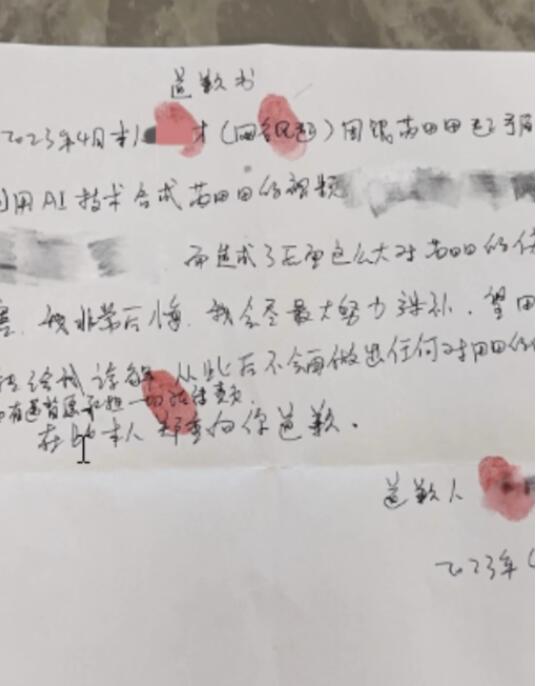 道歉书
2023年4月本人 才(网名) 因跟苏田田
利用AI技术合成苏田田的视频
而造成了后面这么大对苏田田的伤
害,我非常后悔,我会尽最大努力弥补,望田
给我谅解 从此后不会再做出任何对田田的
有违背愿承担一切法律责任
在此本人郑重向你道歉。
道歉人
2023年